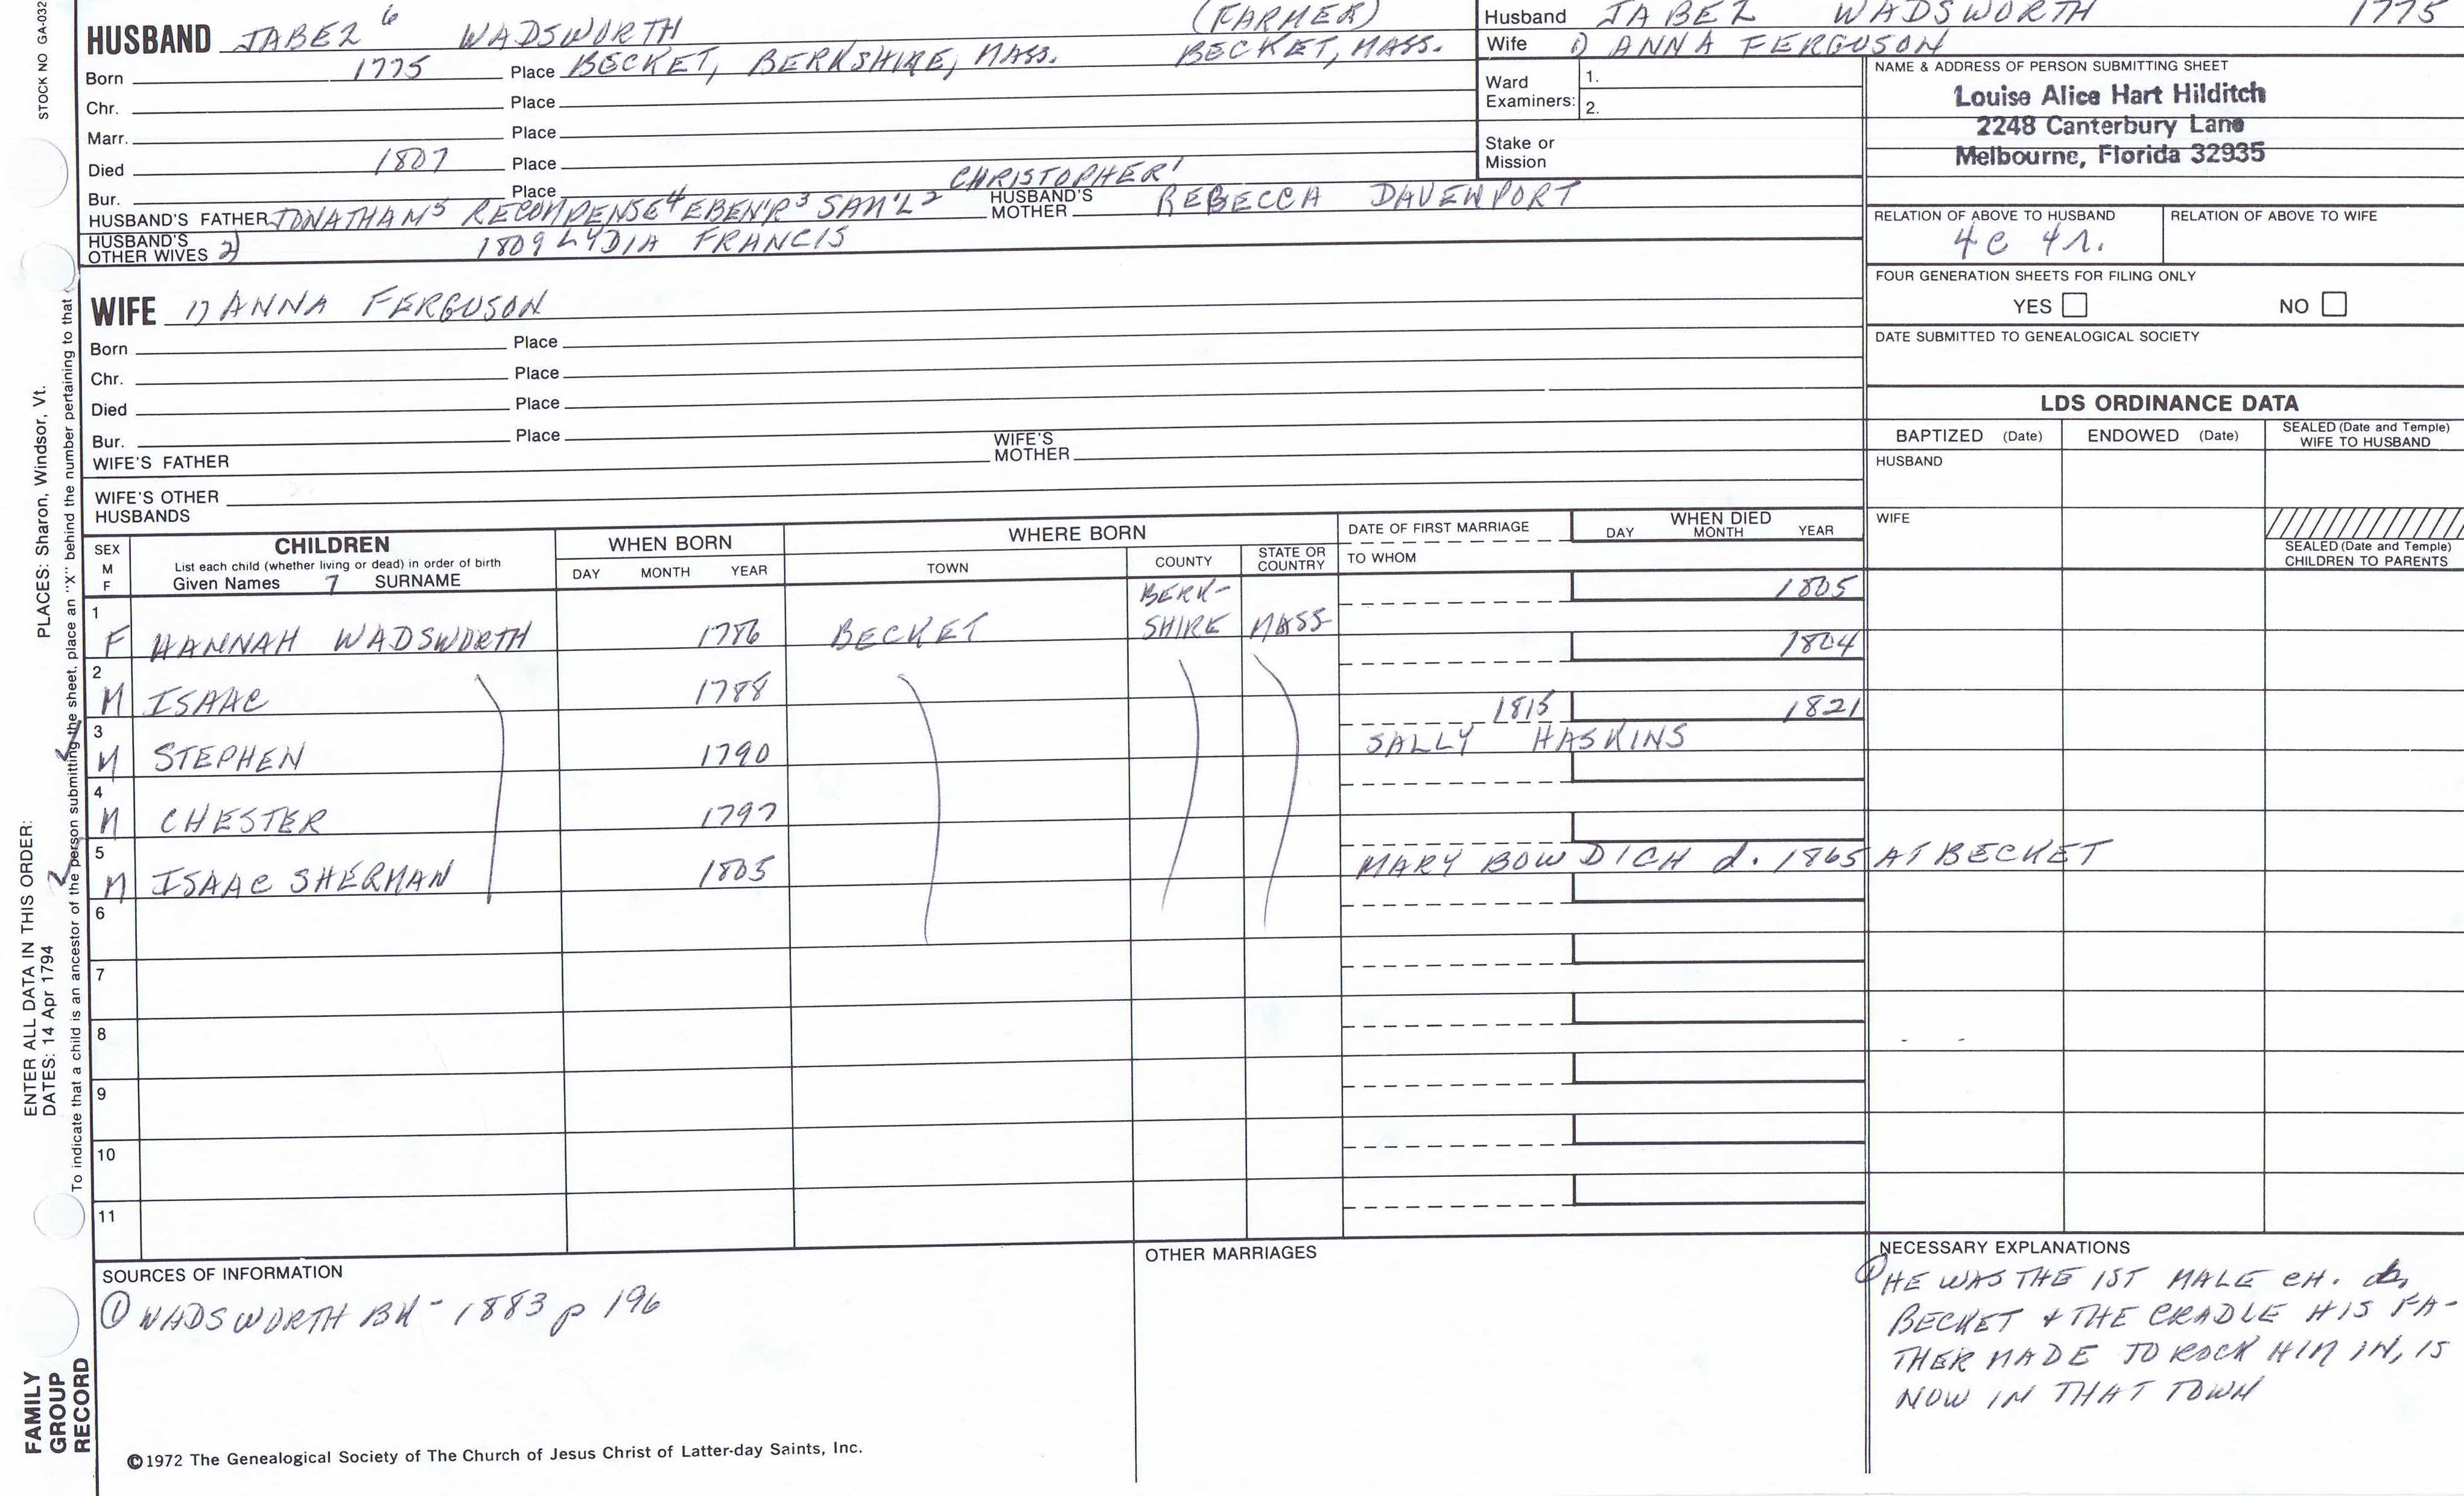 STOCK NO GA-032
PLACES: Sharon, Windsor, Vt.
ENTER ALL DATA IN THIS ORDER:
DATES: 14 Apr 1794
To indicate that a child is an ancestor of the person submitting the sheet, place an "X" behind the number pertaining to that
FAMILY
GROUP
RECORD
HUSBAND JABEZ 6 WADSWORTH (FARMER)
Born 1775 Place BECKET, BERKSHIRE, MASS. BECKET, MASS.
Chr. Place
Marr. Place
Died 1807 Place
Bur. Place CHRISTOPHER 1
HUSBAND'S FATHER JONATHAM 5 RECOMPENSE 4 EBEN'R 3 SAM'L 2 HUSBAND'S MOTHER REBECCA DAVENPORT
HUSBAND'S OTHER WIVES 2) 1809 LYDIA FRANCIS
Husband JABEZ WADSWORTH 1775
Wife 1) ANNA FERGUSON
Ward Examiners: 1.
2.
Stake or Mission
NAME & ADDRESS OF PERSON SUBMITTING SHEET
Louise Alice Hart Hilditch
2248 Canterbury Lane
Melbourne, Florida 32935
RELATION OF ABOVE TO HUSBAND RELATION OF ABOVE TO WIFE
4c 4r.
FOUR GENERATION SHEETS FOR FILING ONLY
YES NO
DATE SUBMITTED TO GENEALOGICAL SOCIETY
WIFE 1) ANNA FERGUSON
Born Place
Chr. Place
Died Place
Bur. Place
WIFE'S FATHER WIFE'S MOTHER
WIFE'S OTHER HUSBANDS
LDS ORDINANCE DATA
BAPTIZED (Date) ENDOWED (Date) SEALED (Date and Temple) WIFE TO HUSBAND
HUSBAND
WIFE
SEALED (Date and Temple) CHILDREN TO PARENTS
SEX M F CHILDREN WHEN BORN WHERE BORN DATE OF FIRST MARRIAGE WHEN DIED
List each child (whether living or dead) in order of birth
Given Names 7 SURNAME DAY MONTH YEAR TOWN COUNTY STATE OR COUNTRY TO WHOM DAY MONTH YEAR
1 F HANNAH WADSWORTH 1786 BECKET BERK-SHIRE MASS 1805
2 M ISAAC 1788 1804
3 M STEPHEN 1790 1815 1821
SALLY HASKINS
4 M CHESTER 1797
5 M ISAAC SHERMAN 1805 MARY BOWDICH d. 1865 AT BECKET
6
7
8
9
10
11
SOURCES OF INFORMATION
① WADSWORTH BK - 1883 p 196
OTHER MARRIAGES
NECESSARY EXPLANATIONS
① HE WAS THE 1ST MALE CH. b.
BECKET & THE CRADLE HIS FA-
THER MADE TO ROCK HIM IN, IS
NOW IN THAT TOWN
©1972 The Genealogical Society of The Church of Jesus Christ of Latter-day Saints, Inc.